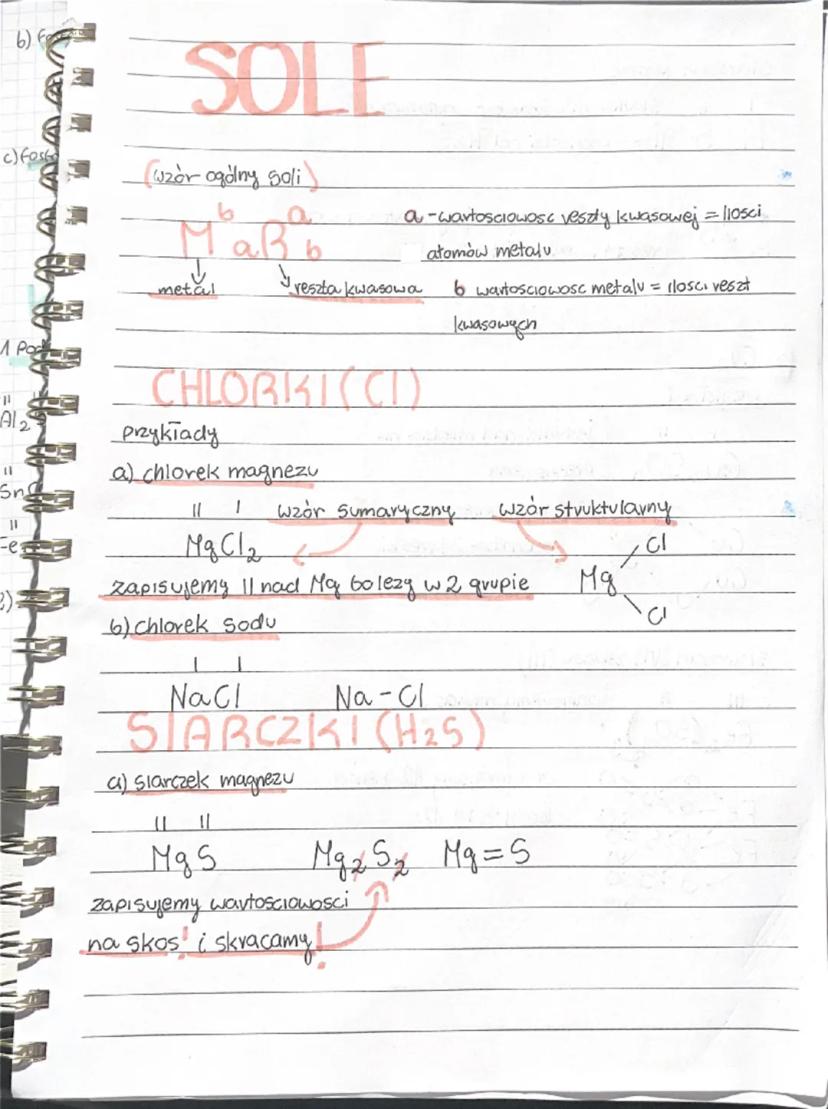 SOLE
(wzór ogólny soli)
b a
MaRb
a - wartosciowosc reszty kwasowej = ilosci
atomów metalu
metal
reszta kwasowa
b wartosciowosc metalu = ilosci reszt
kwasowych
CHLORKI (Cl)
przykłady
a) chlorek magnezu
II I wzór sumaryczny wzór strukturalny
MgCl2
Cl
Mg
Cl
zapisujemy II nad Mg bo leży w 2 grupie
b) chlorek sodu
I I
NaCl Na-Cl
SIARCZKI (H2S)
a) siarczek magnezu
II II
MgS Mg2S2 Mg=S
zapisujemy wartosciowosci
na skos! i skracamy!
b)
c) fosfo
1 Pod
II
Al2
II
Sn
II